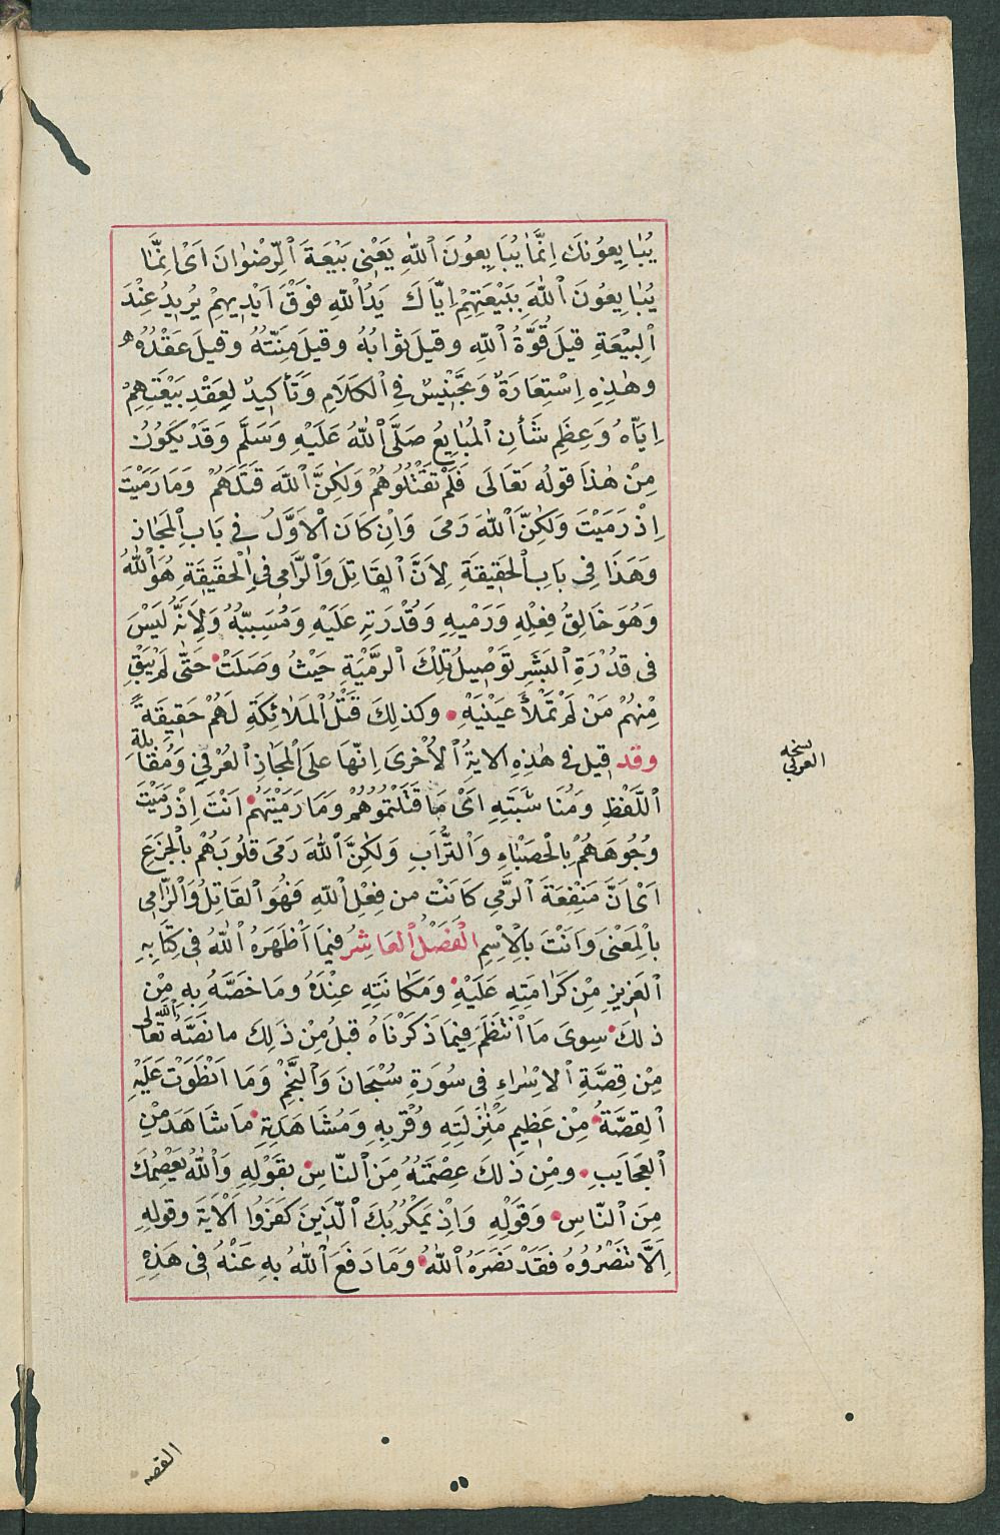 يُبَايِعُونَكَ اِنَّمَا يُبَايِعُونَ ٱللّٰهَ يَعْنِى بَيْعَةَ ٱلرِّضْوٰانَ اَىْ اِنَّمَا
يُبَايِعُونَ ٱللّٰهَ بِبَيْعَتِهِمْ اِيَّاكَ يَدُ ٱللّٰهِ فَوْقَ اَيْدِيهِمْ يُرِيدُ عِنْدَ
ٱلْبَيْعَةِ قيلَ قُوَّةُ ٱللّٰهِ وقيلَ ثَوَابُهُ وقيلَ مِنَّتُهُ وقيلَ عَقْدُهُ
وهٰذِهِ اِسْتِعَارَةٌ وَتَجْنِيسٌ فِى ٱلْكَلَامِ وَتَأْكِيدٌ لِعَقْدِ بَيْعَتِهِمْ
اِيَّاهُ وَعِظَمِ شَأنِ ٱلْمُبَايِعِ صَلَّى ٱللّٰهُ عَلَيْهِ وَسَلَّم وَقَدْ يَكُونُ
مِنْ هٰذَا قولُهُ تَعَالَى فَلَمْ تَقْتُلُوهُمْ وَلٰكِنَّ ٱللّٰهَ قَتَلَهُمْ وَمَا رَمَيْتَ
اِذْ رَمَيْتَ وَلٰكِنَّ ٱللّٰهَ رَمىَ وَاِنْ كَانَ ٱلْاَوَّلُ فى بَابِ ٱلْمَجَازِ
وَهَذَا فِى بَابِ ٱلْحَقِيقَةِ لِاَنَّ ٱلْقَاتِلَ وَٱلرَّامِى فِى ٱلْحَقِيقَةِ هُوَ ٱللّٰهُ
وَهُوَ خَالِقُ فِعْلِهِ وَرَمْيِهِ وَقُدْرَتِهِ عَلَيْهِ وَمُسَبِّبُهُ وَلِاَنَّهُ لَيْسَ
فى قُدْرَةِ ٱلْبَشَرِ تَوْصِيلُ تِلْكَ ٱلرَّمْيَةِ حَيْثُ وَصَلَتْ حَتّٰى لَمْ يَبْقَ
مِنْهُمْ مَنْ لَمْ تَمْلَأْ عَيْنَيْهِ وكذلِكَ قَتْلُ ٱلْمَلَائِكَةِ لَهُمْ حَقِيقَةً
وقد قيلَ فى هٰذِهِ الايةِ ٱلْاُخْرىَ اِنَّهَا عَلَى ٱلْمَجَازِ ٱلْعُرْفِىِّ وَمُقَابلة
ٱللَّفْظِ ومُنَاسَبَتِهِ اَىْ مَا قَتَلْتُمُوهُمْ وَمَا رَمَيْتَهُمْ اَنْتَ اِذْ رَمَيْتَ
وُجُوهَهُمْ بِالْحَصْبَاءِ وَٱلتُّرَابِ وَلٰكِنَّ ٱللّٰهَ رَمىَ قلُوبَهُمْ بِٱلْجَزَعِ
اَىْ اَنَّ مَنْفِعَةَ ٱلرَّمْىِ كَانَتْ مِن فِعْلِ ٱللّٰهِ فَهُوَ ٱلْقَاتِلُ وَٱلرَّامِى
بالْمَعْنىَ وَاَنْتَ بِالْاِسْمِ ٱلْفَصْلُ ٱلْعَاشِرُ فِيمَا اَظْهَرَهُ ٱللّٰهُ فِى كِتَابِهِ
ٱلْعَزِيزِ مِنْ كَرَامَتِهِ عَلَيْهِ وَمَكَانَتِهِ عِنْدَهُ ومَا خَصَّهُ بِهِ مِنْ
ذلِكَ سِوىَ مَا ٱنْتَظَمَ فِيمَا ذَكَرْنَاهُ قبلُ مِنْ ذَلِكَ ما نَصَّهُ ٱللّٰه تعالى
مِنْ قِصَّةِ ٱلْاِسْرَاءِ فى سُورَةِ سُبْحَانَ وَٱلنَّجْمِ وَمَا انْطَوَتْ عَلَيْهِ
ٱلْقِصَّةُ مِنْ عَظِيمِ مَنْزِلَتِهِ وقُرْبِهِ وَمُشَاهَدَتِهِ مَا شَاهَدَ مِنَ
ٱلْعَجَايَبِ ومِنْ ذَلكَ عِصْمَتُهُ مِنَ ٱلنَّاسِ بِقَوْلِهِ وَٱللّٰهُ يَعْصِمُكَ
مِنَ ٱلنَّاسِ وَقَوْلِهِ وَاِذْ يَمْكُرُ بِكَ ٱلَّذِينَ كَفَرُوا ٱلْاٰيَةَ وقولِهِ
اِلَّا تَنْصُرُوهُ فَقَدْ نَصَرَهُ ٱللّٰهُ وَمَا دَفَعَ ٱللّٰهُ بِهِ عَنْهُ فِى هَذِهِ
نسخه
العرفى
القصه